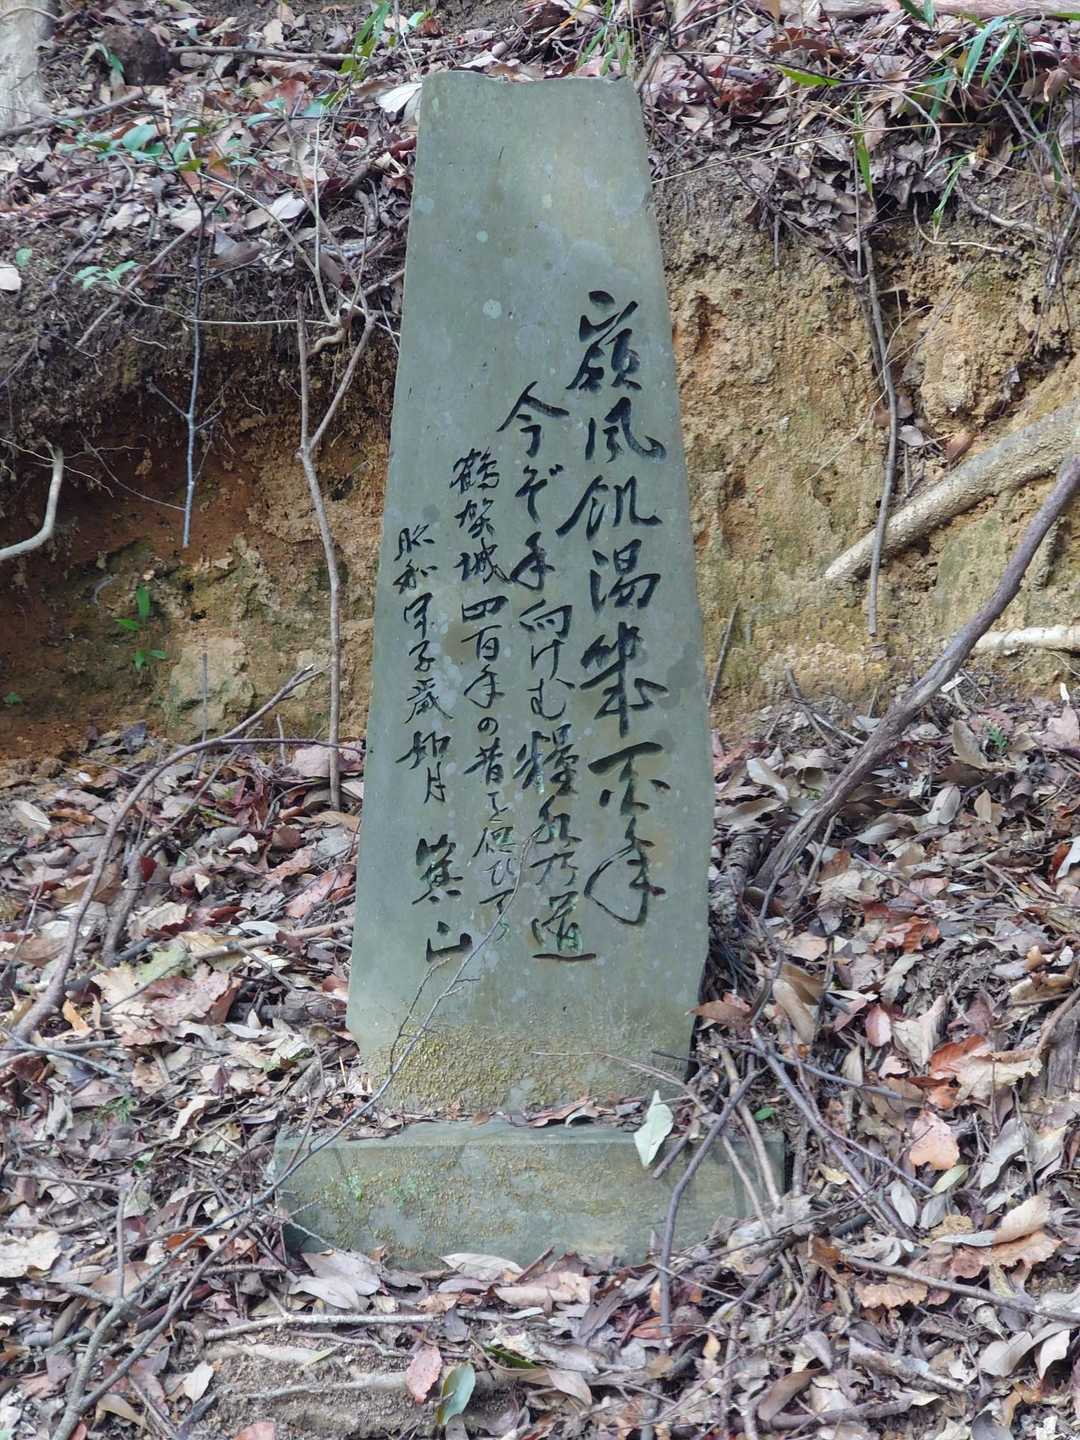 嶺風飢渇幾百年
今ぞ手向けむ糧水乃道
鶴賀城四百年の昔を偲びて
昭和甲子歳如月 山